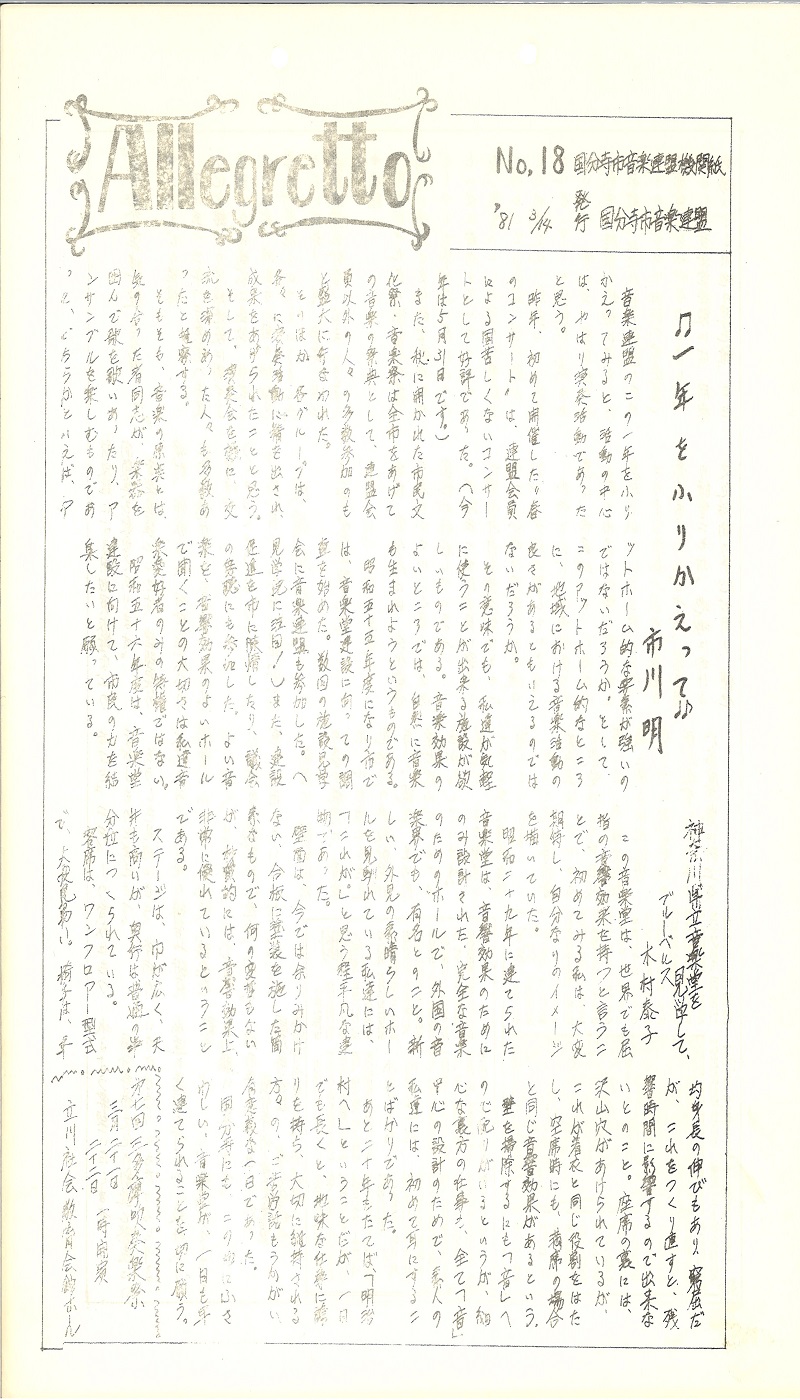 Allegretto
No.18 国分寺市音楽連盟機関紙
'81 3/14 発行 国分寺市音楽連盟
♫一年をふりかえって♫
市川 明
音楽連盟のこの一年をふり
かえってみると、活動の中心
は、やはり演奏活動であった
と思う。
昨年、初めて開催した"春
のコンサート"は、連盟会員
による肩苦しくないコンサー
トとして好評であった。(今
年は5月31日です。)
また、秋に開かれた市民文
化祭・音楽祭は全市をあげて
の音楽の祭典として、連盟会
員以外の人々の多数参加のも
と盛大に行なわれた。
そのほか、各グループは、
各々に演奏活動に精を出され、
成果をあげられたことと思う。
そして、演奏会を聴き、交
流を深めあった人々も多数あ
ったと推察する。
そもそも、音楽の原点とは、
気の合った者同志が、楽器を
囲んで歌を歌いあったり、ア
ンサンブルを楽しむものであ
って、どちらかといえば、ア
ットホーム的な要素が強いの
ではないだろうか。そして、
このアットホーム的なところ
に、地域における音楽活動の
良さがあるともいえるのでは
ないだろうか。
その意味でも、私達が気軽
に使うことが出来る施設が欲
しいものである。音楽効果の
よいところでは、自然に音楽
も生まれようというものである。
昭和五十五年度になり市で
は、音楽堂建設にあっての調
査を始めた。数回の施設見学
会に音楽連盟も参加した。(
見学記は五回!)また、建設
促進を市に陳情したり、議会
の傍聴にも参加した。よい音
楽を、音響効果のよいホール
で聞くことの大切さは私達音
楽愛好者のみの特権ではない。
昭和五十六年度は、音楽堂
建設に向けて、市民の力を結
集したいと願っている。
神奈川県立音楽堂を
見学して、
ブルーベルス
木村泰子
この音楽堂は、世界でも屈
指の音響効果を持つと言うこ
とで、初めてみる私は、大変
期待し、自分なりのイメージ
を描いていた。
昭和二十九年に建てられた
音楽堂は、音響効果のために
のみ設計された、完全な音楽
のためのホールで、外国の音
楽界でも、有名とのこと。新
しい、外見の素晴らしいホー
ルを見馴れている私達には、
「これが。」と思う程平凡な建
物であった。
壁面は、今では余りみかけ
ない、合板に塗装を施した簡
素なもので、何の変哲もない
が、お世辞的には、音響効果上、
非常に優れているということ
である。
ステージは、巾が広く、天
井も高いが、奥行は普通の半
分位につくられている。
客席は、ワンフロアー型式
で、大変見易い。椅子は、平
均身長の伸びもあり、窮屈だ
が、これをつくり直すと、残
響時間に影響するので出来な
いとのこと。座席の裏には、
沢山穴があけられているが、
これが着衣と同じ役割をはた
し、空席時にも、満席の場合
と同じ音響効果があるという。
壁を掃除するにも「音」へ
の心配りがいるというが、細
心な裏方の仕事も、全て「音」
中心の設計のためで、素人の
私達には、初めて耳にするこ
とばかりであった。
あと二十年もたてば「明治
村へ」ということだが、一日
でも長くと、地味な仕事に誇
りを持ち、大切に維持される
方々の、ご苦労話もうかがい、
有意義な一日であった。
国分寺にも、この市にふさ
わしい、音楽堂が、一日も早
く建てられることを切に願う。
三月二十一日
二十二日 一時開演
立川社会教育会館ホール